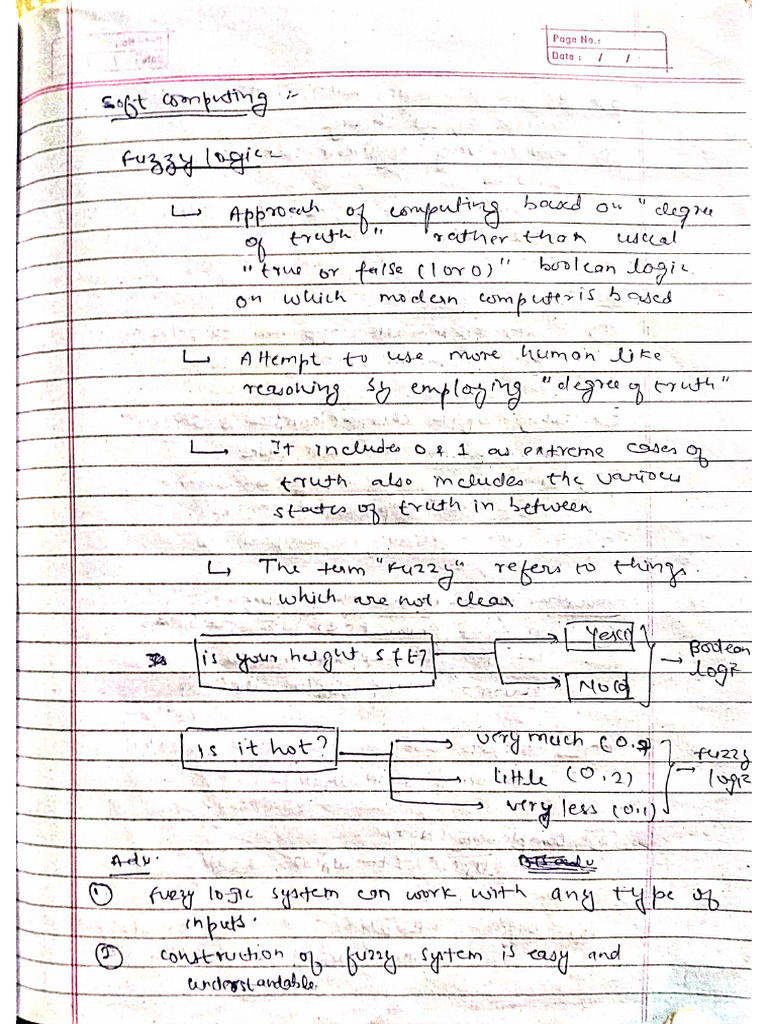 Page No.:
Date: / /
Soft computing :-
Fuzzy logic :-
↳ Approach of computing based on "degree
of truth" rather than usual
"true or false (1 or 0)" boolean logic
on which modern computer is based
↳ Attempt to use more human like
reasoning by employing "degree of truth"
↳ It includes 0 & 1 as extreme cases of
truth also includes the various
states of truth in between
↳ The term "Fuzzy" refers to things
which are not clear
is your height 5 ft?
Yes(1)
No(0)
→ Boolean
logic
is it hot?
very much (0.9)
little (0.2)
very less (0.1)
→ fuzzy
logic
Adv.
① Fuzzy logic system can work with any type of
inputs.
② construction of fuzzy system is easy and
understandable.